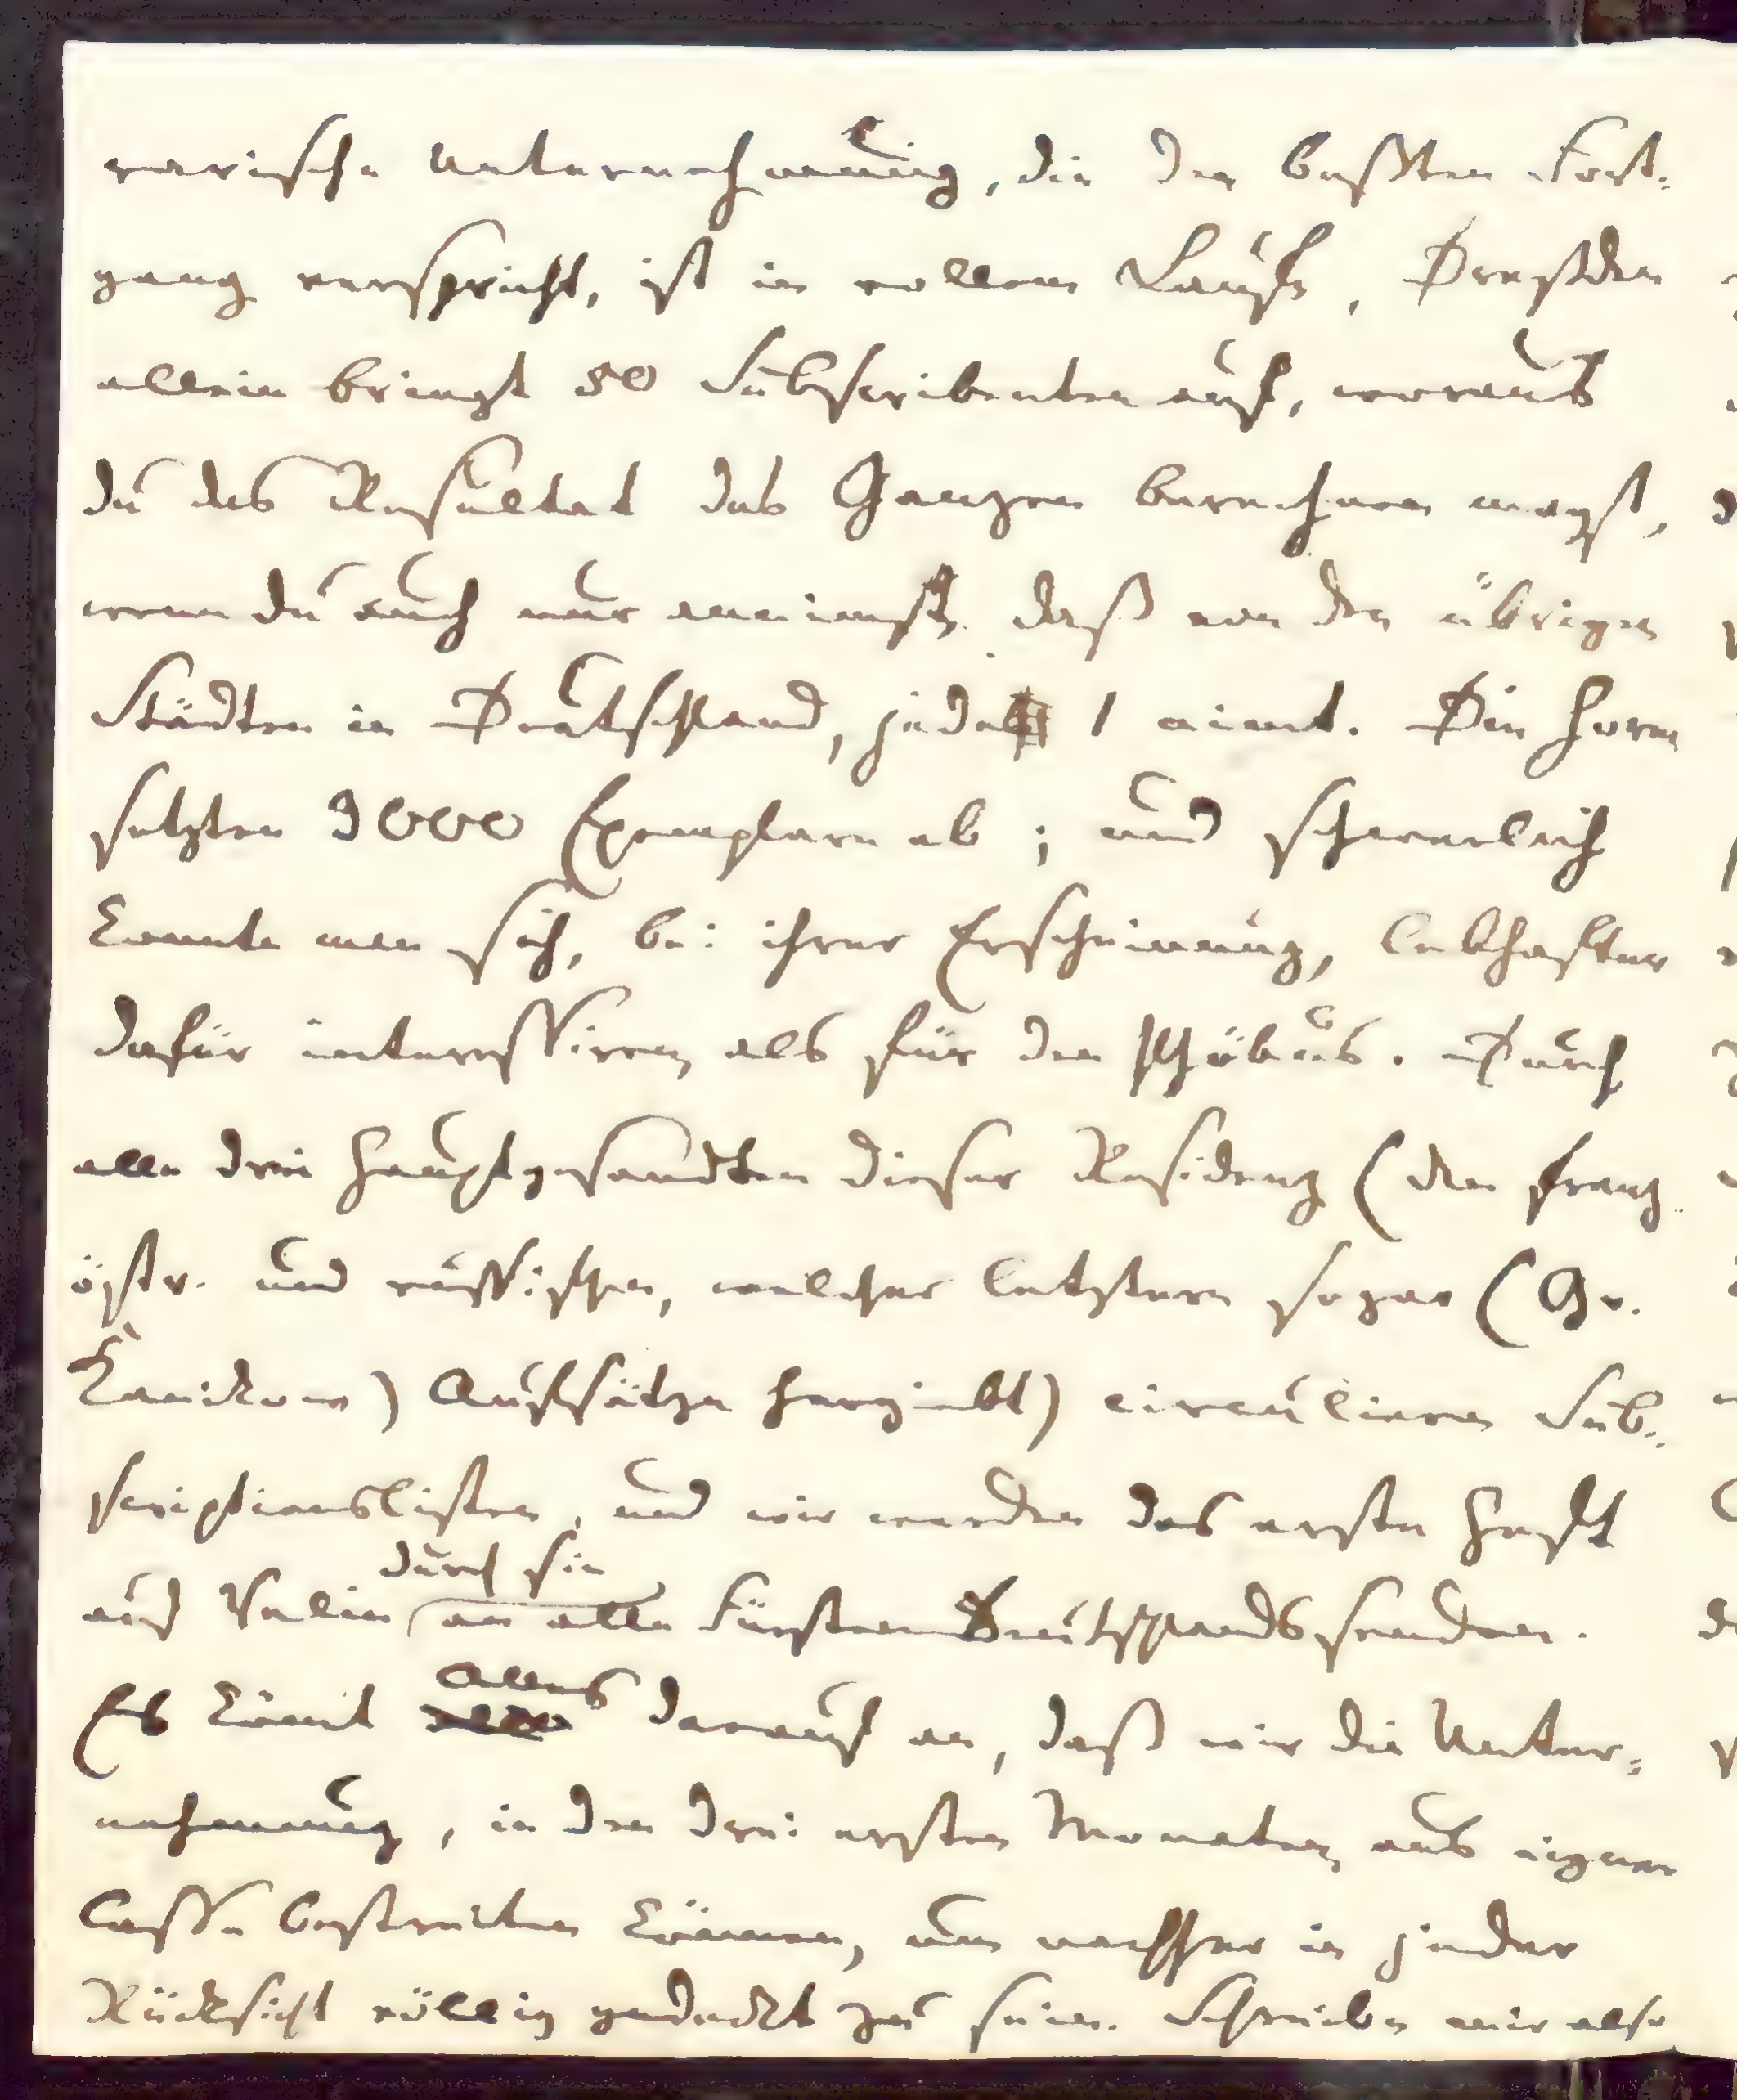 rarische Unternehmung, die den beßten Fort-
gang verspricht, ist in vollem Laufe, Dreßden
allein bringt 50 Subscribenten auf, woraus
du das Resultat des Ganzen berechnen magst,
wenn du auch nur annimst, daß von den übrigen
Städten in Deutschland, jede 1 nimt. Die Horen
setzten 3000 Exemplare ab; und schwerlich
konnte man sich, bei ihrer Erscheinung, lebhafter
dafür interessiren, als für den Phöbus. Durch
alle drei Hauptgesandten dieser Residenz (den franz.
östr. und russischen, welcher letztere sogar (Gr.
Kanikow) Aufsätze hergiebt) circuliren Sub-
scriptionslisten, und wir werden das erste Heft
durch sie
auf Velin an alle Fürsten Deutschlands senden.
Alles
Es kömmt darauf an, daß wir die Unter-
nehmung, in den drei ersten Monaten aus eigner
Casse bestreiten können, um nachher in jeder
Rücksicht völlig gedeckt zu sein. Schreibe mir also